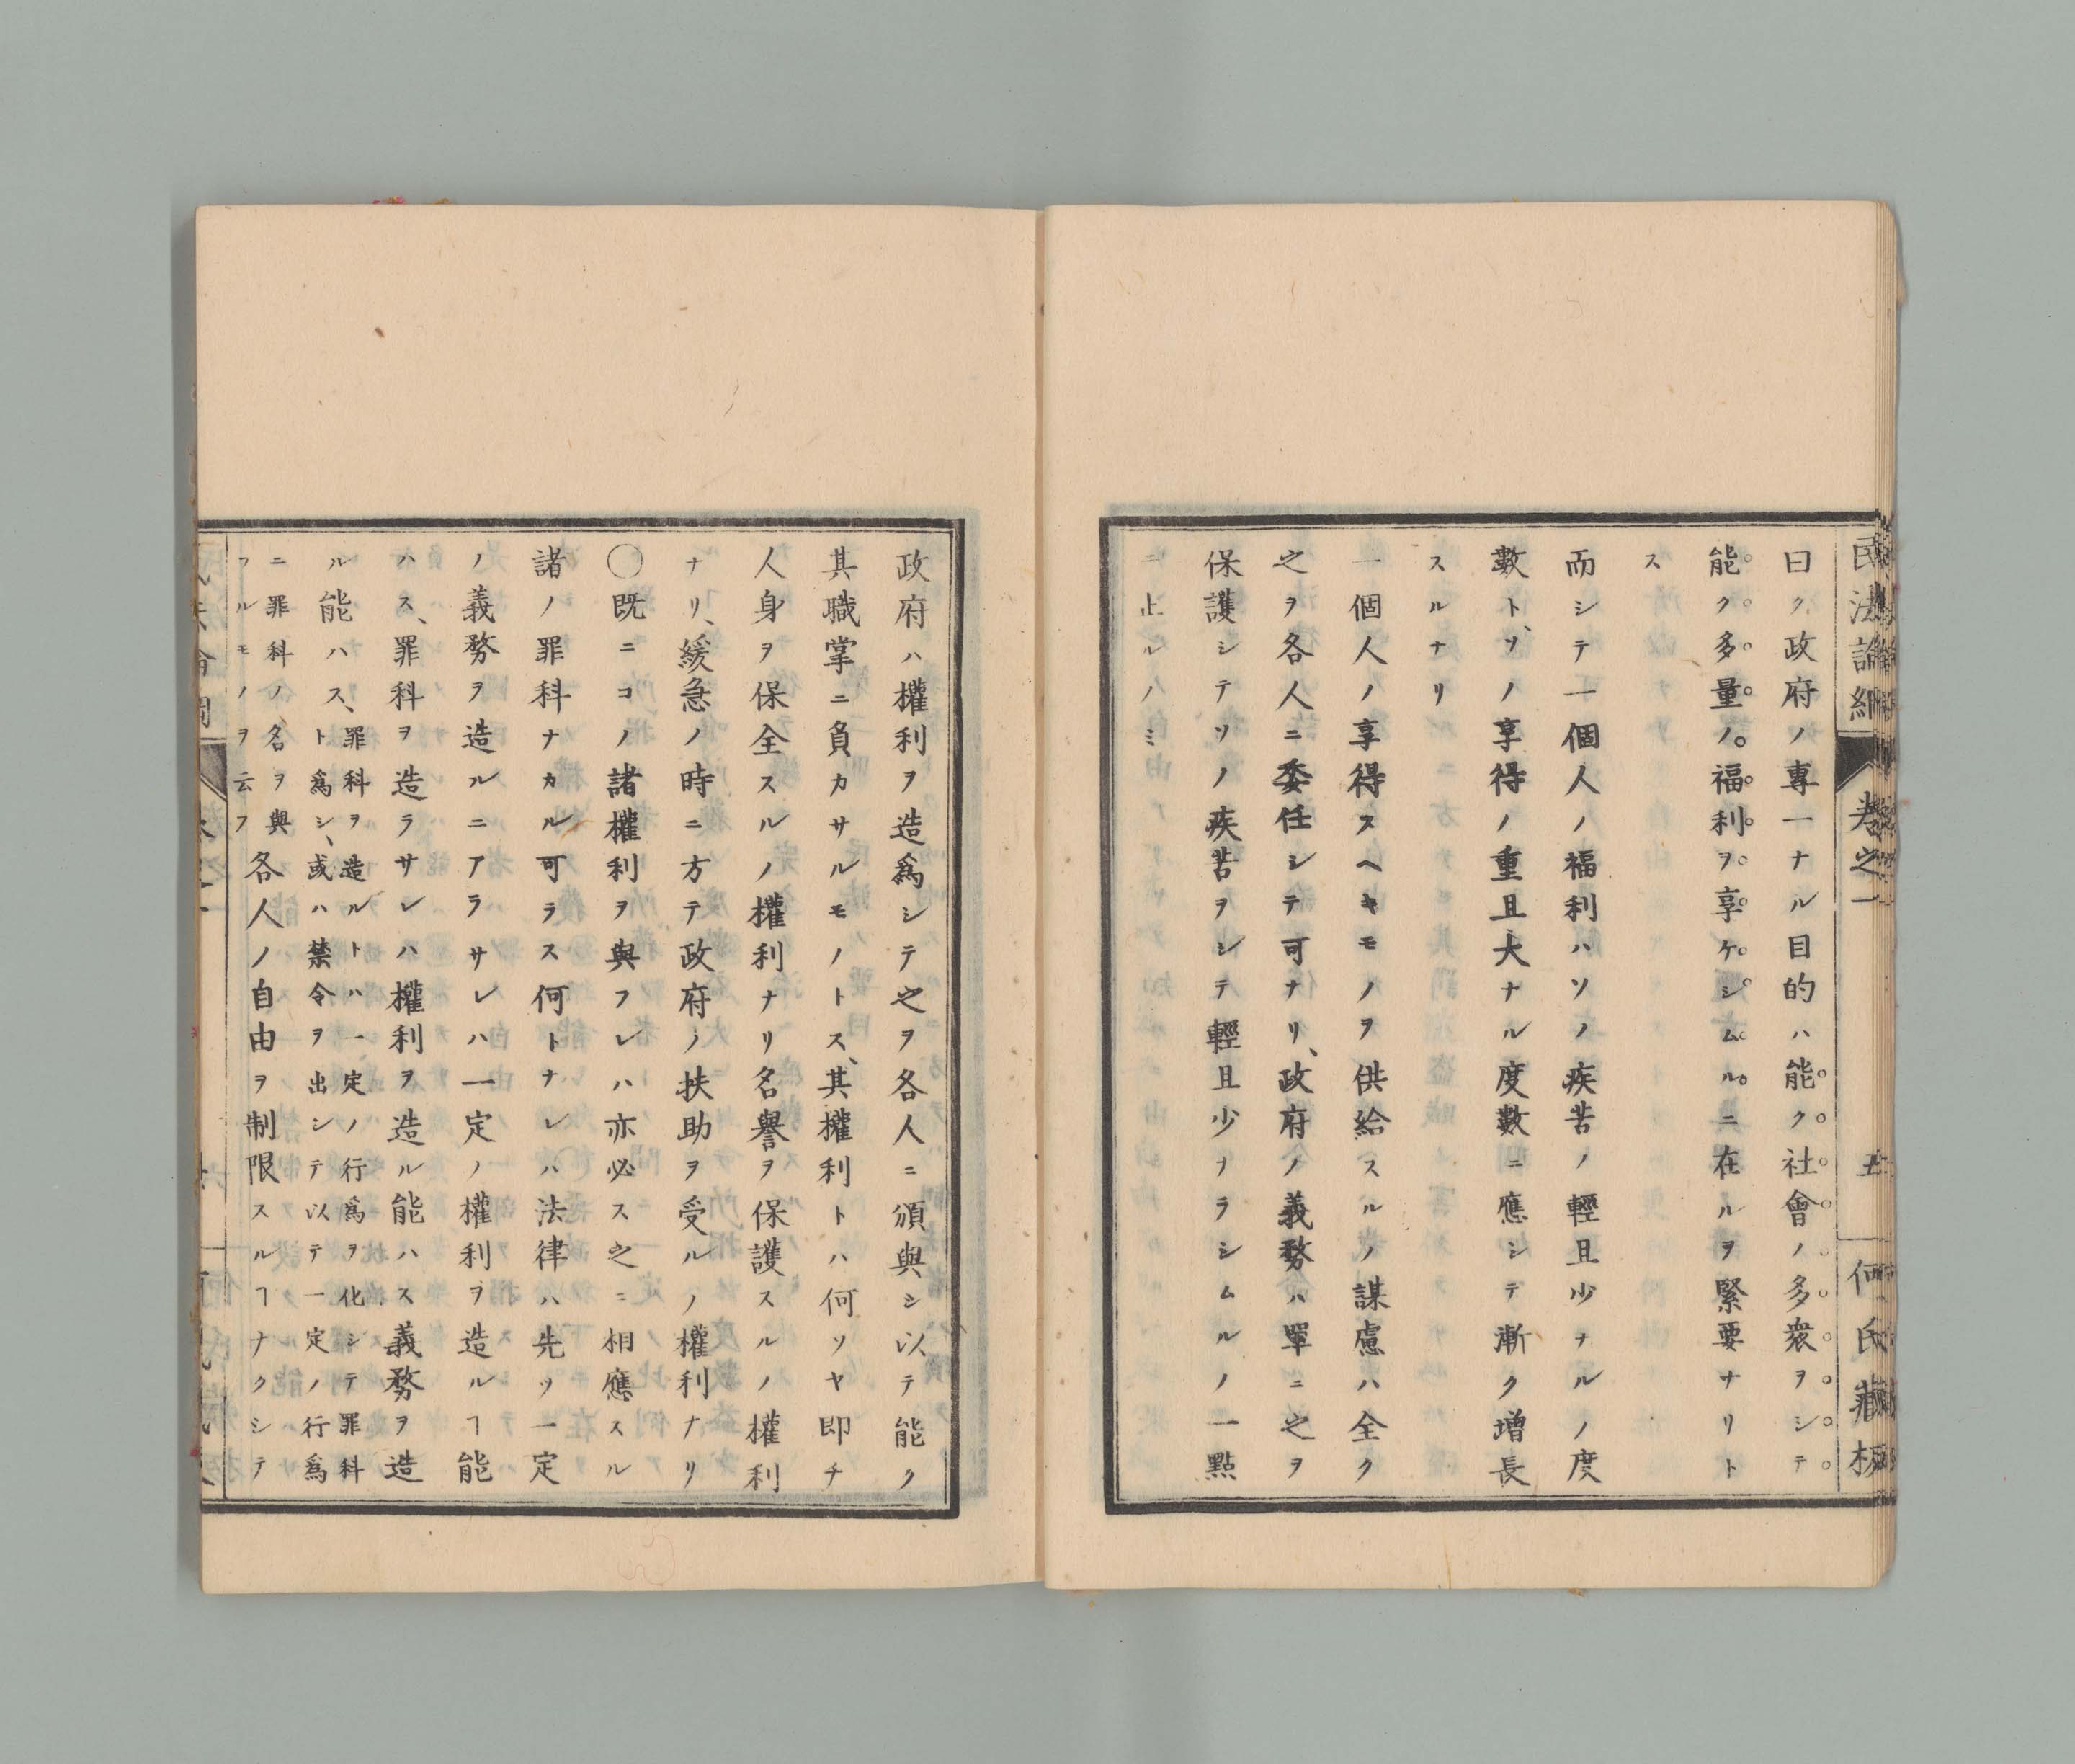 民法論綱 卷之一 五 何氏藏板
曰ク政府ノ專一ナル目的ハ能ク社會ノ多衆ヲシテ
能ク多量ノ福利ヲ享ケシムルニ在ルヲ緊要ナリト
ス
而シテ一個人ノ福利ハソノ疾苦ノ輕且少ナルノ度
數ト、ソノ享得ノ重且大ナル度數ニ應シテ漸ク增長
スルナリ
一個人ノ享得スヘキモノヲ供給スルノ謀慮ハ全ク
之ヲ各人ニ委任シテ可ナリ、政府ノ義務ハ單ニ之ヲ
保護シテソノ疾苦ヲシテ輕且少ナラシムルノ一點
ニ止ルノミ
政府ハ權利ヲ造爲シテ之ヲ各人ニ頒與シ以テ能ク
其職掌ニ負カサルモノトス、其權利トハ何ソヤ即チ
人身ヲ保全スルノ權利ナリ名譽ヲ保護スルノ權利
ナリ、緩急ノ時ニ方テ政府ノ扶助ヲ受ルノ權利ナリ
〇既ニコノ諸權利ヲ與フレハ亦必ス之ニ相應スル
諸ノ罪科ナカル可ラス何トナレハ法律ハ先ツ一定
ノ義務ヲ造ルニアラサレハ一定ノ權利ヲ造ルヿ能
ハス、罪科ヲ造ラサレハ權利ヲ造ル能ハス義務ヲ造
ル能ハス、罪科ヲ造ルトハ一定ノ行爲ヲ化シテ罪科
ト爲シ、或ハ禁令ヲ出シテ以テ一定ノ行爲
ニ罪科ノ名ヲ與
フルモノヲ云フ
各人ノ自由ヲ制限スルヿナクシテ